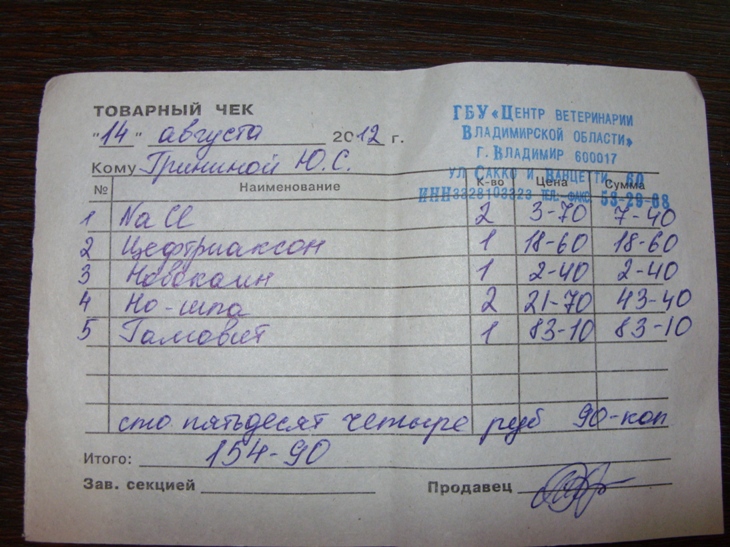 ТОВАРНЫЙ ЧЕК
"14" августа 2012 г.
ГБУ «ЦЕНТР ВЕТЕРИНАРИИ
ВЛАДИМИРСКОЙ ОБЛАСТИ»
Г. ВЛАДИМИР 600017
УЛ САККО И ВАНЦЕТТИ, 60
ИНН 3328103323 ТЕЛ. ФАКС 53-29-08
Кому Грининой Ю.С.
№ Наименование К-во Цена Сумма
1 NaCl 2 3-70 7-40
2 Цефтриаксон 1 18-60 18-60
3 Новокаин 1 2-40 2-40
4 Но-шпа 2 21-70 43-40
5 Гамовит 1 83-10 83-10
сто пятьдесят четыре руб 90-коп
Итого: 154-90
Зав. секцией
Продавец